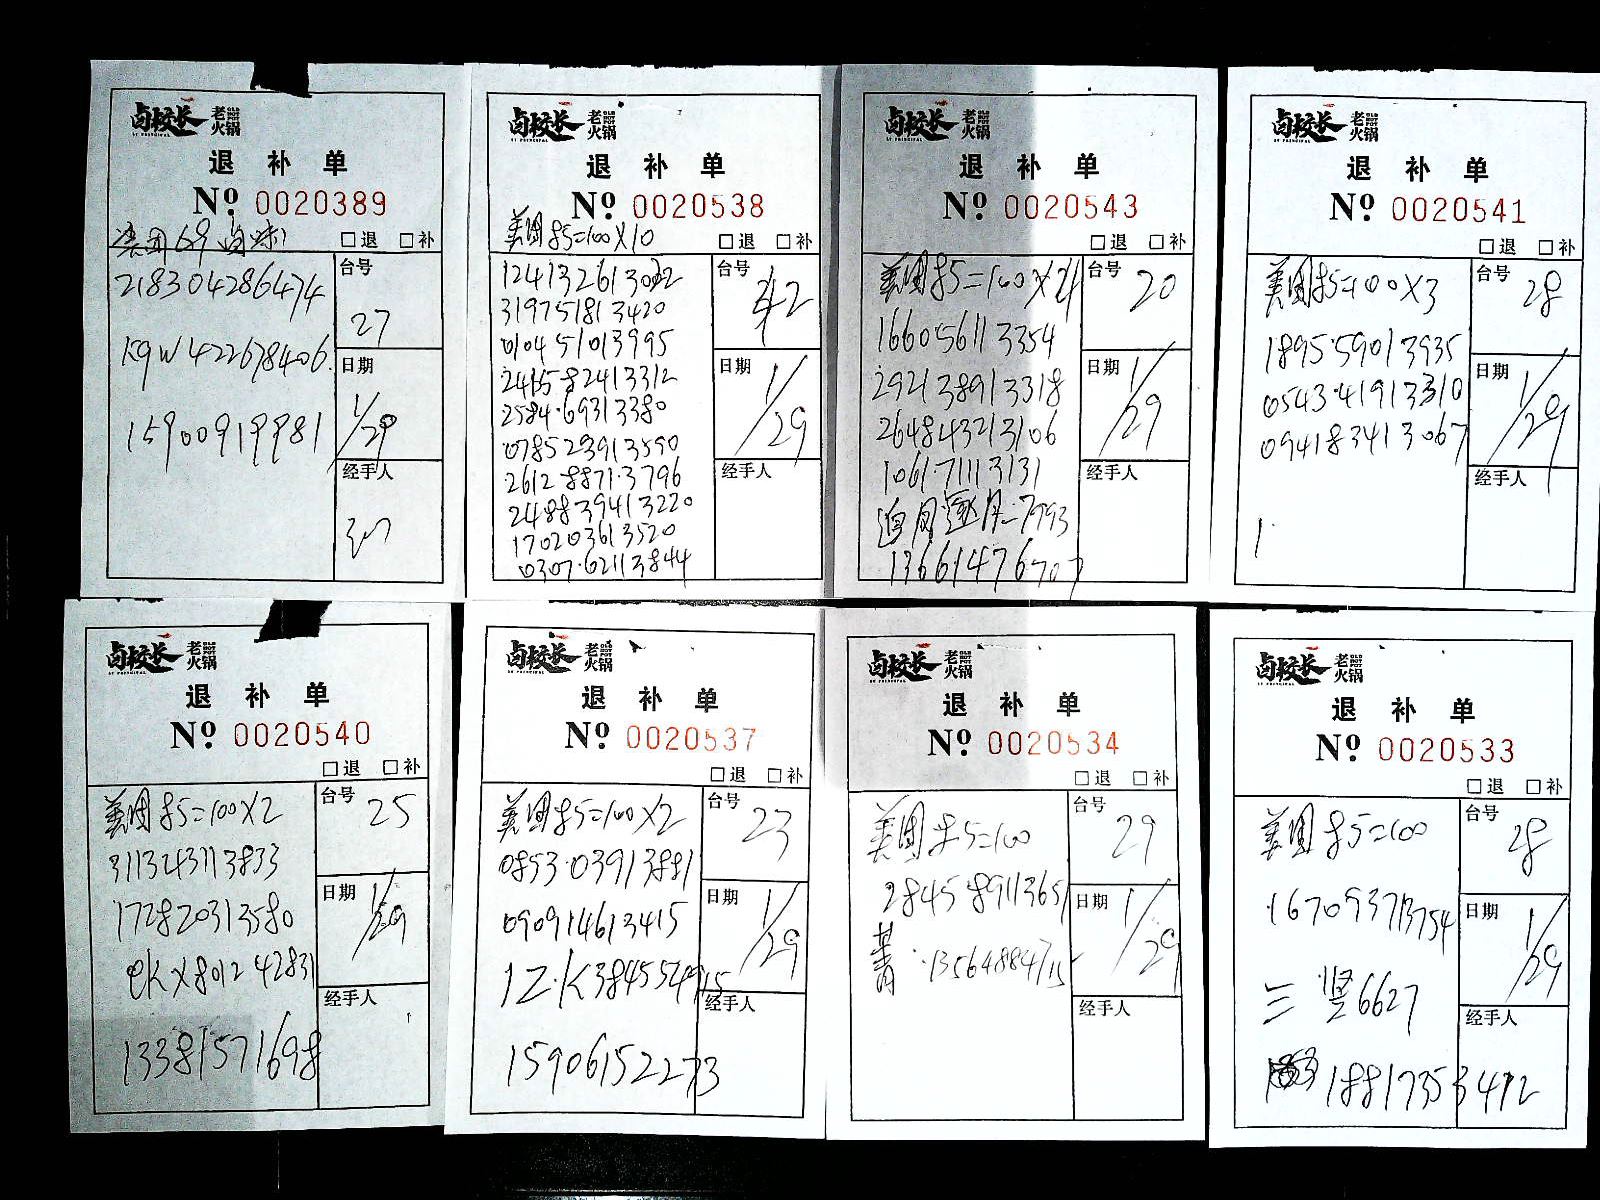 卤校长 老火锅
退 补 单
No. 0020389
美团69卤味1
□退 □补
218304286474
台号
27
KqW422678406.
日期
1/29
15900919981
经手人
卤校长 老火锅
退 补 单
No. 0020538
美团85=100X10
□退 □补
319751813420
台号
42
010451013995
241582413312
日期
1/29
2584·69313380
078523913590
经手人
2612·88713796
248839413220
170203613520
0307·62113844
卤校长 老火锅
退 补 单
No. 0020543
□退 □补
美团85=100X4
台号
20
166056113354
292138913318
日期
1/29
264843213106
106171113131
经手人
7993
13661476707
卤校长 老火锅
退 补 单
No. 0020541
□退 □补
美团85=100X3
台号
28
1895·59013935
0543·41913310
日期
1/29
094183413067
经手人
卤校长 老火锅
退 补 单
No. 0020540
□退 □补
美团85=100X2
台号
25
3113243113833
172820313580
日期
1/29
经手人
13381571698
卤校长 老火锅
退 补 单
No. 0020537
□退 □补
美团85=100X2
台号
23
0853·03913881
090914613415
日期
1/29
经手人
15906152273
卤校长 老火锅
退 补 单
No. 0020534
□退 □补
美团85=100
台号
29
284589113651
日期
1/29
13564884715
经手人
卤校长 老火锅
退 补 单
No. 0020533
□退 □补
美团85=100
台号
28
167093713754
日期
1/29
三竖6627
经手人
18817353412